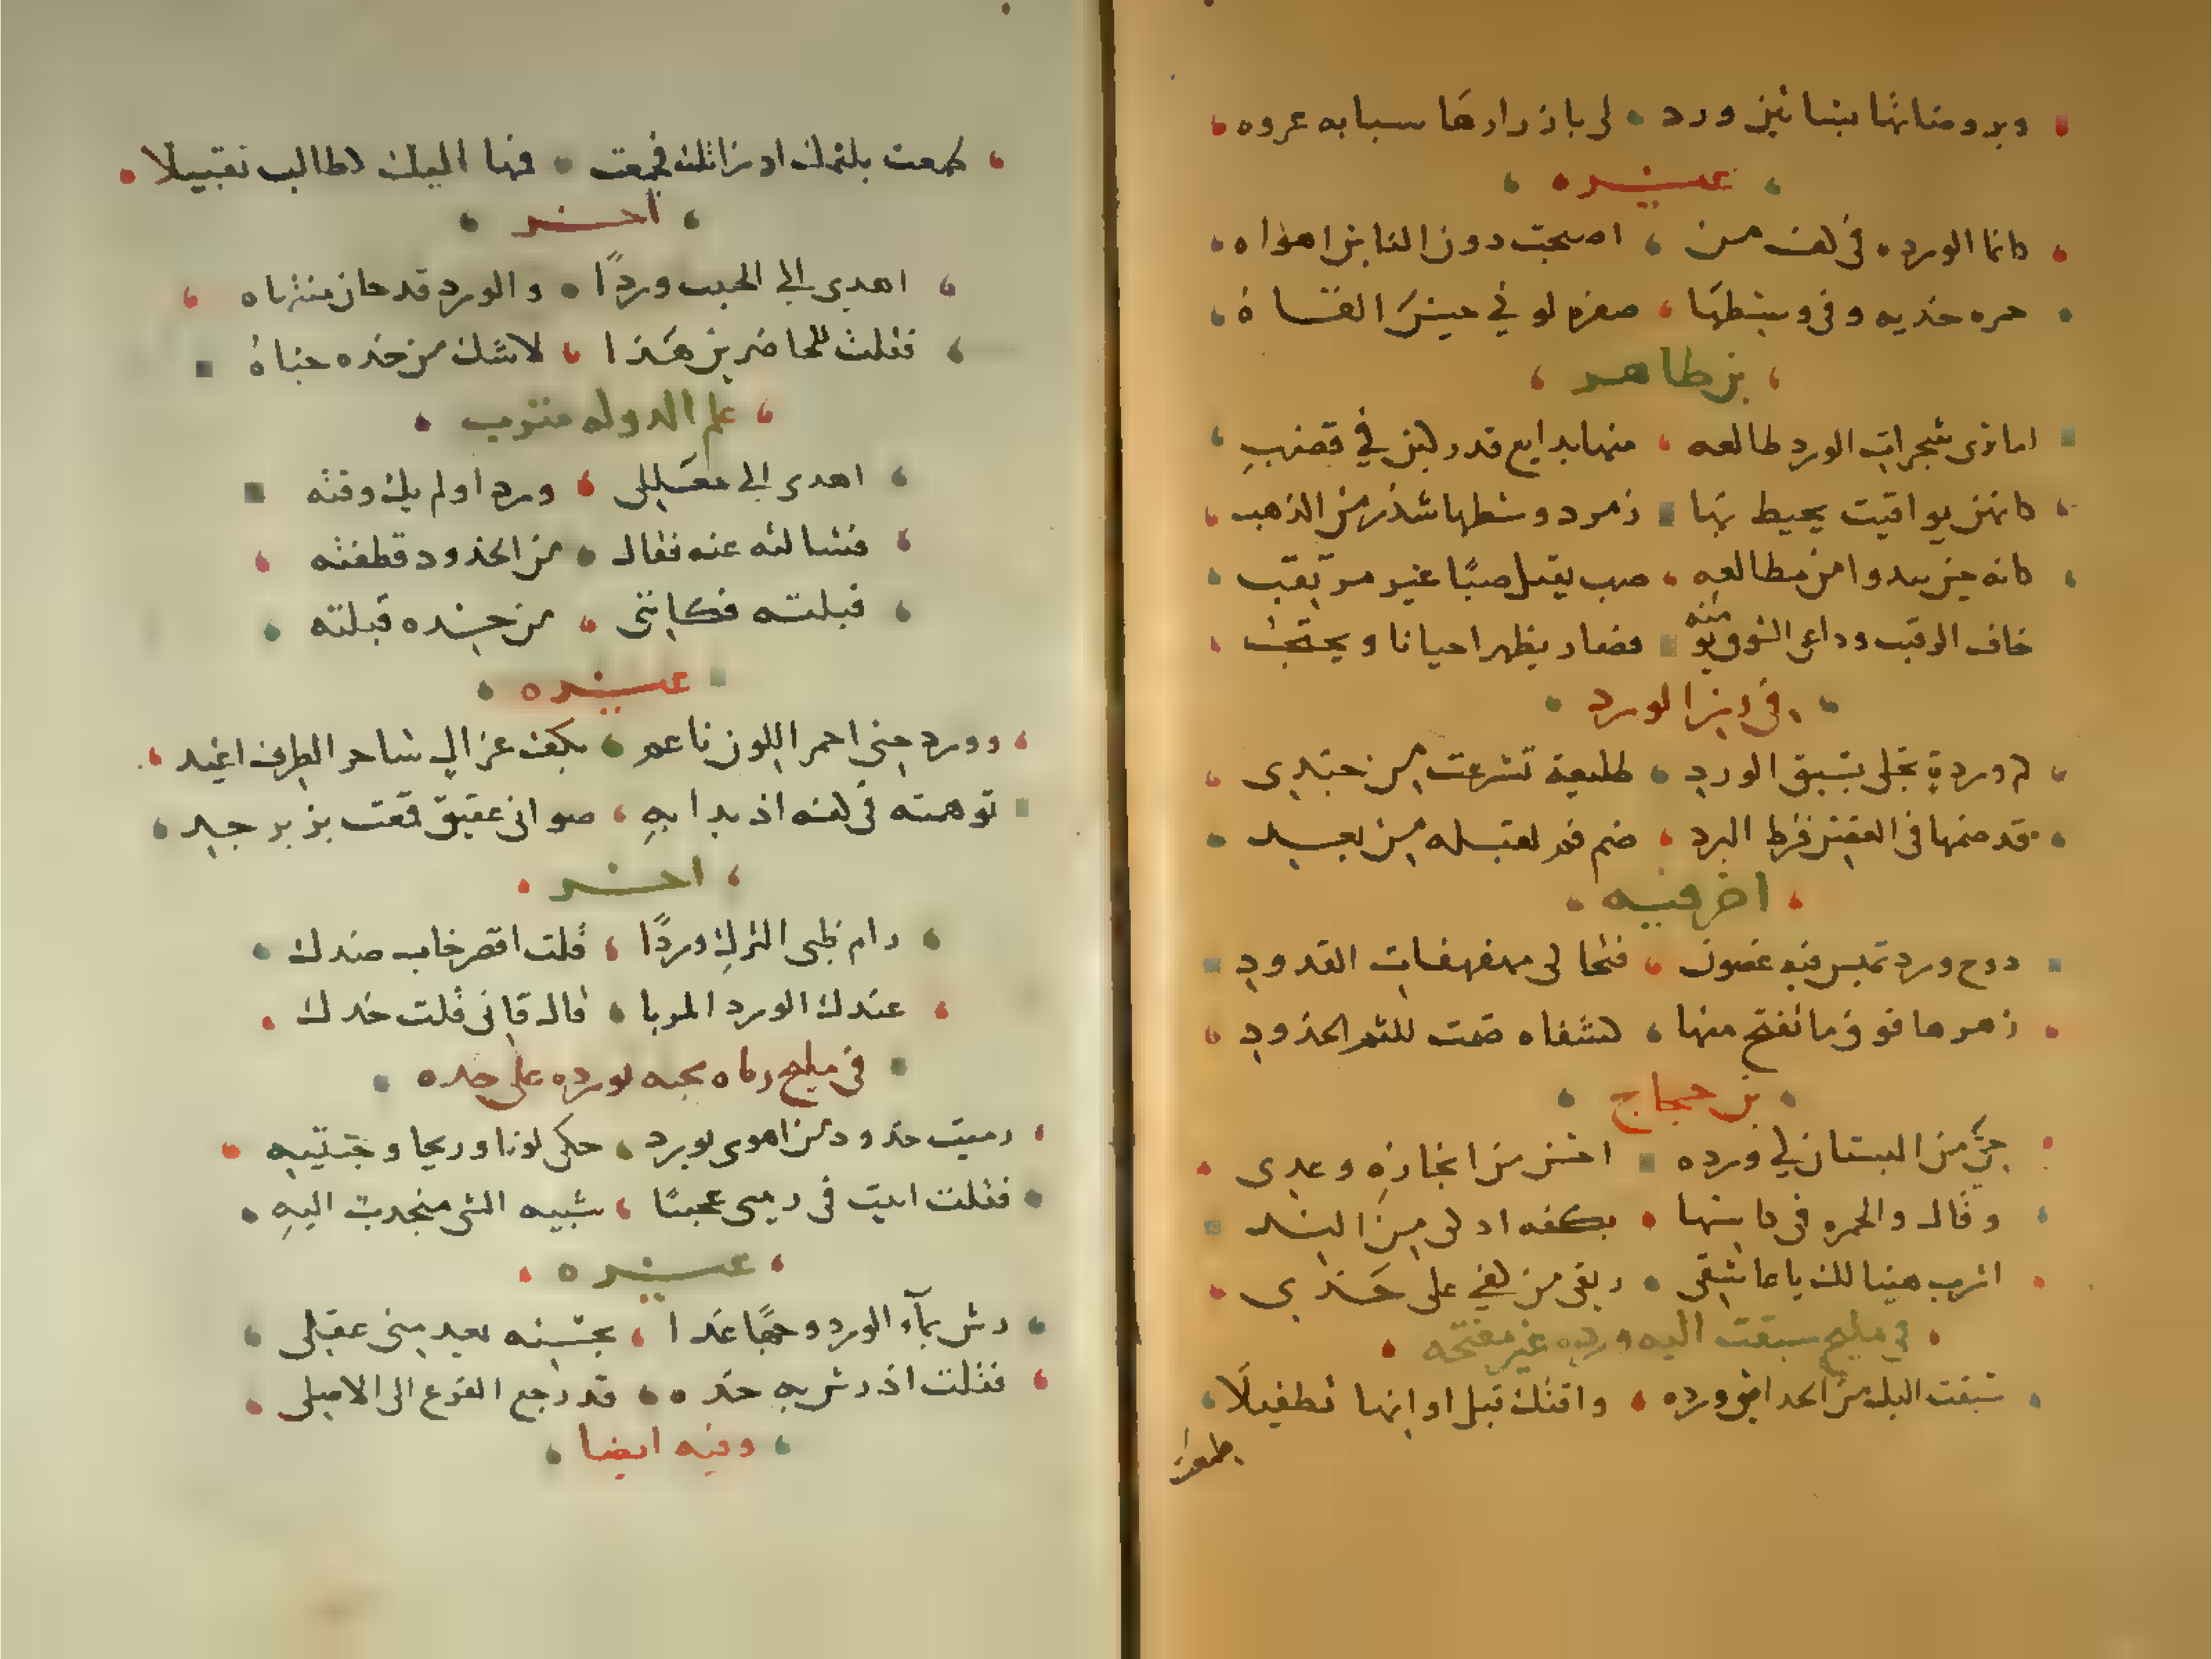 وبروضاتها بنتا نين ورد لى با زرارها سبابه عروه
غيره
كانما الورده فى كف من اصبحت دون الناس اهواه
حمره خديه وفى وسطها صفره لونى حين القاه
بن طاهر
اما ترى شجرات الورد طالعه منها بدايع قد ركبن فى قضب
كانهن يواقيت يحيط بها زمرد وسطها شذر من الذهب
كانه حين يبدوا من مطالعه صب يقبل صبا غير مرتقب
خاف الرقيب وداعى الشوق يو منه فصار يظهر احيانا ويحتجب
فى زر الورد
كم وردة تجلى بسبق الورد طليعة تسرعت من جندى
قد ضمها فى الغصن فرط البرد ضم فم لقبله من بعيد
اخر فيه
دوح ورد تميس فيه غصون فتحاكى مهفهفات القدود
زهرها فوق ما تفتح منها كشفاه ضمت للثم الخدود
بن حجاج
جنى من البستان لى ورده احسن من انجازه وعدى
وقال والخمره فى كاسها بكفه اذكى من الند
اشرب هنيا لك يا عاشقى ريقى من كفى على خدى
فى مليح سبقت اليه ورده غير مفتحه
سبقت اليك من الحدايق ورده واتتك قبل اوانها تطفيلا
طمعت
طمعت بلثمك اذ راتك فجمعت فمها اليك كطالب تقبيلا
اخر
اهدى الى الحبيب وردا والورد قد حان منتهاه
فقلت للحاضرين هذا لاشك من خده جناه
علم الدوله
اهدى الى معللى وردا ولم يك وقته
فسالته عنه فقال من الخدود قطفته
قبلته فكاننى من خده قبلته
غيره
وورد جنى احمر اللون ناعم بكف غزال ساحر الطرف اغيد
توهمته فى كفه اذ بدا به صوانى عقيق قمعت بزبرجد
اخر
رام ظبى الترك وردا قلت اقصر خاب صدك
عندك الورد المربا قال قانى قلت خدك
فى مليح رماه محبه بورده على خده
رميت خدود من اهوى بورد حكى لونا وريحا وجنتيه
فقلت اتيت فى رميى عجبا شبيه الشى منجدب اليه
غيره
رش بماء الورد وجها غدا بحسنه بعيد منى عقلى
فقلت اذ رش به خده قد رجع الفرع الى الاصلى
وفيه ايضا